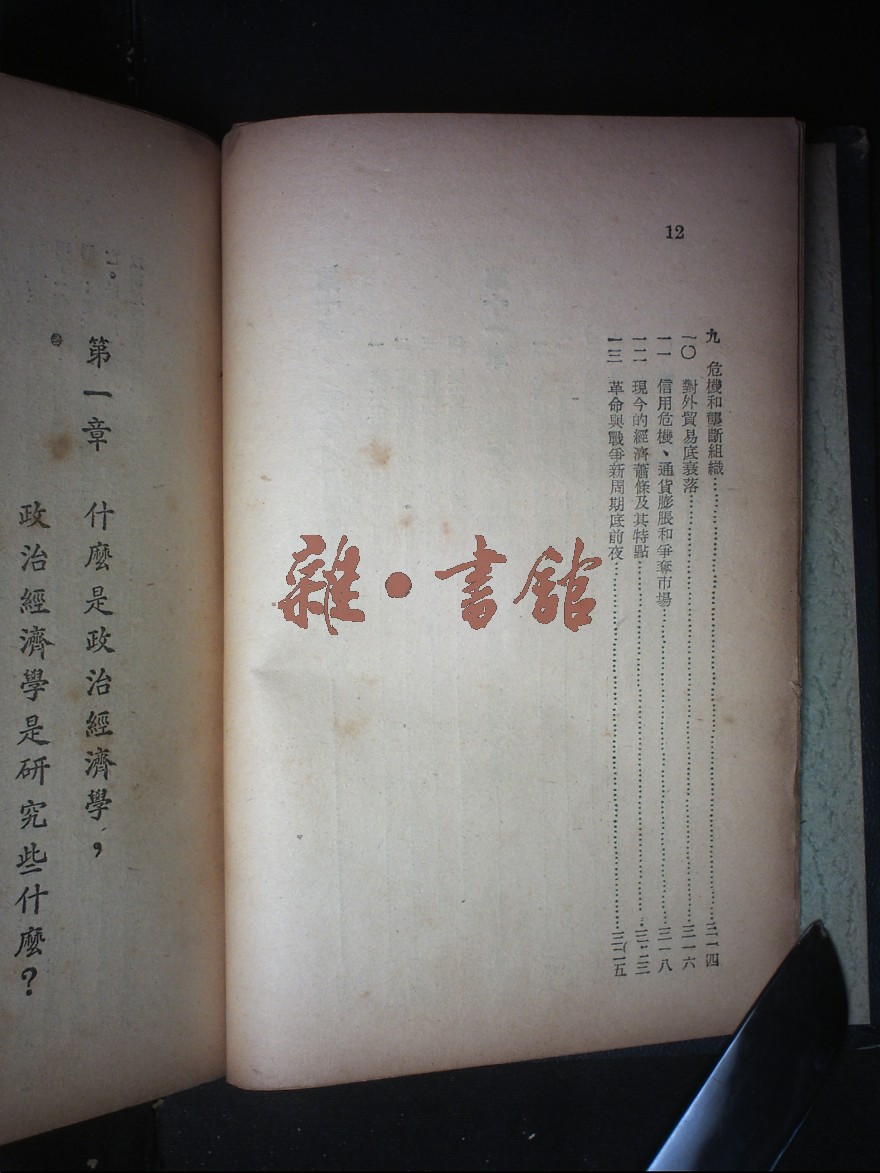 12
九　危機和壟斷組織……三一四
一〇　對外貿易底衰落……三一六
一一　信用危機、通貨膨脹和爭奪市場……三一八
一二　現今的經濟蕭條及其特點……三二三
一三　革命與戰爭新周期底前夜……三二五
雜·書館
第一章　什麼是政治經濟學，
政治經濟學是研究些什麼？